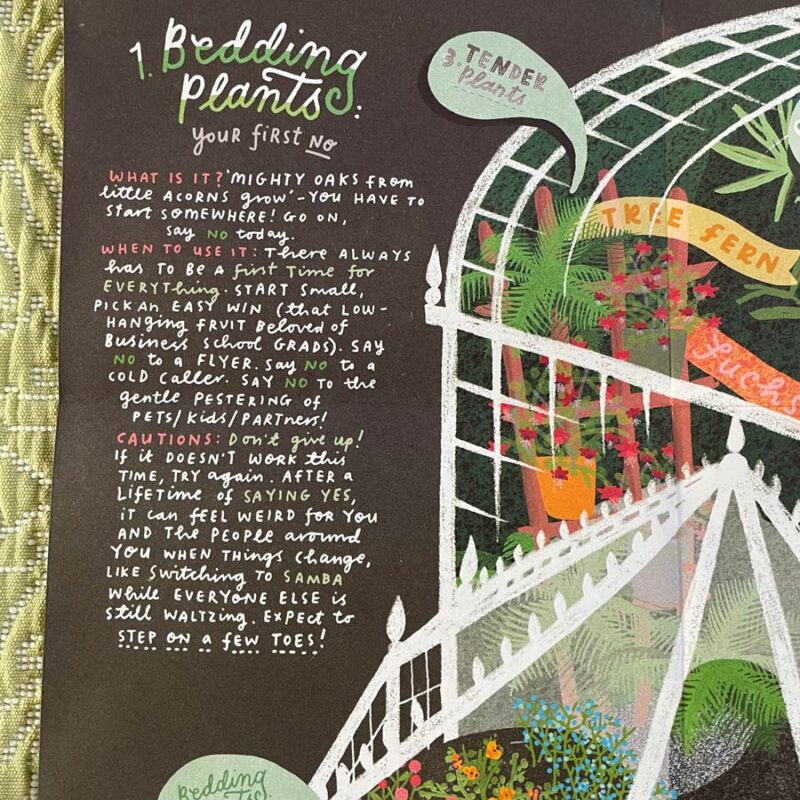 1. Bedding
Plants:
your first NO
WHAT IS IT? 'MIGHTY OAKS from
little Acorns grow' - YOU HAVE TO
Start SOMEWHERE! GO ON,
say NO today.
WHEN TO USE IT: There ALWAYS
has TO BE A first Time for
EVERYthing. START Small,
PICK An EASY WIN (that LOW-
HANGING FRUIT Beloved of
Business School GRADS). SAY
NO to a FLYER. Say NO to a
COLD CALLER. SAY NO TO the
gentle PESTERING of
PETS/Kids/PARTNERS!
CAUTIONS: Don't give up!
If it DOESN'T WORK this
TIME, TRY again. AFTER A
LIFETIME of SAYING YES,
it can FEEL WEIRD FOR YOU
AND The PEOPLE around
YOU WHEN THINGS Change,
LIKE Switching TO SAMBA
While EVERYONE ELSE is
still WALTZING. EXPECT to
STEP ON a FEW TOES!
3. TENDER
Plants
TREE FERN
Fuchs
Bedding